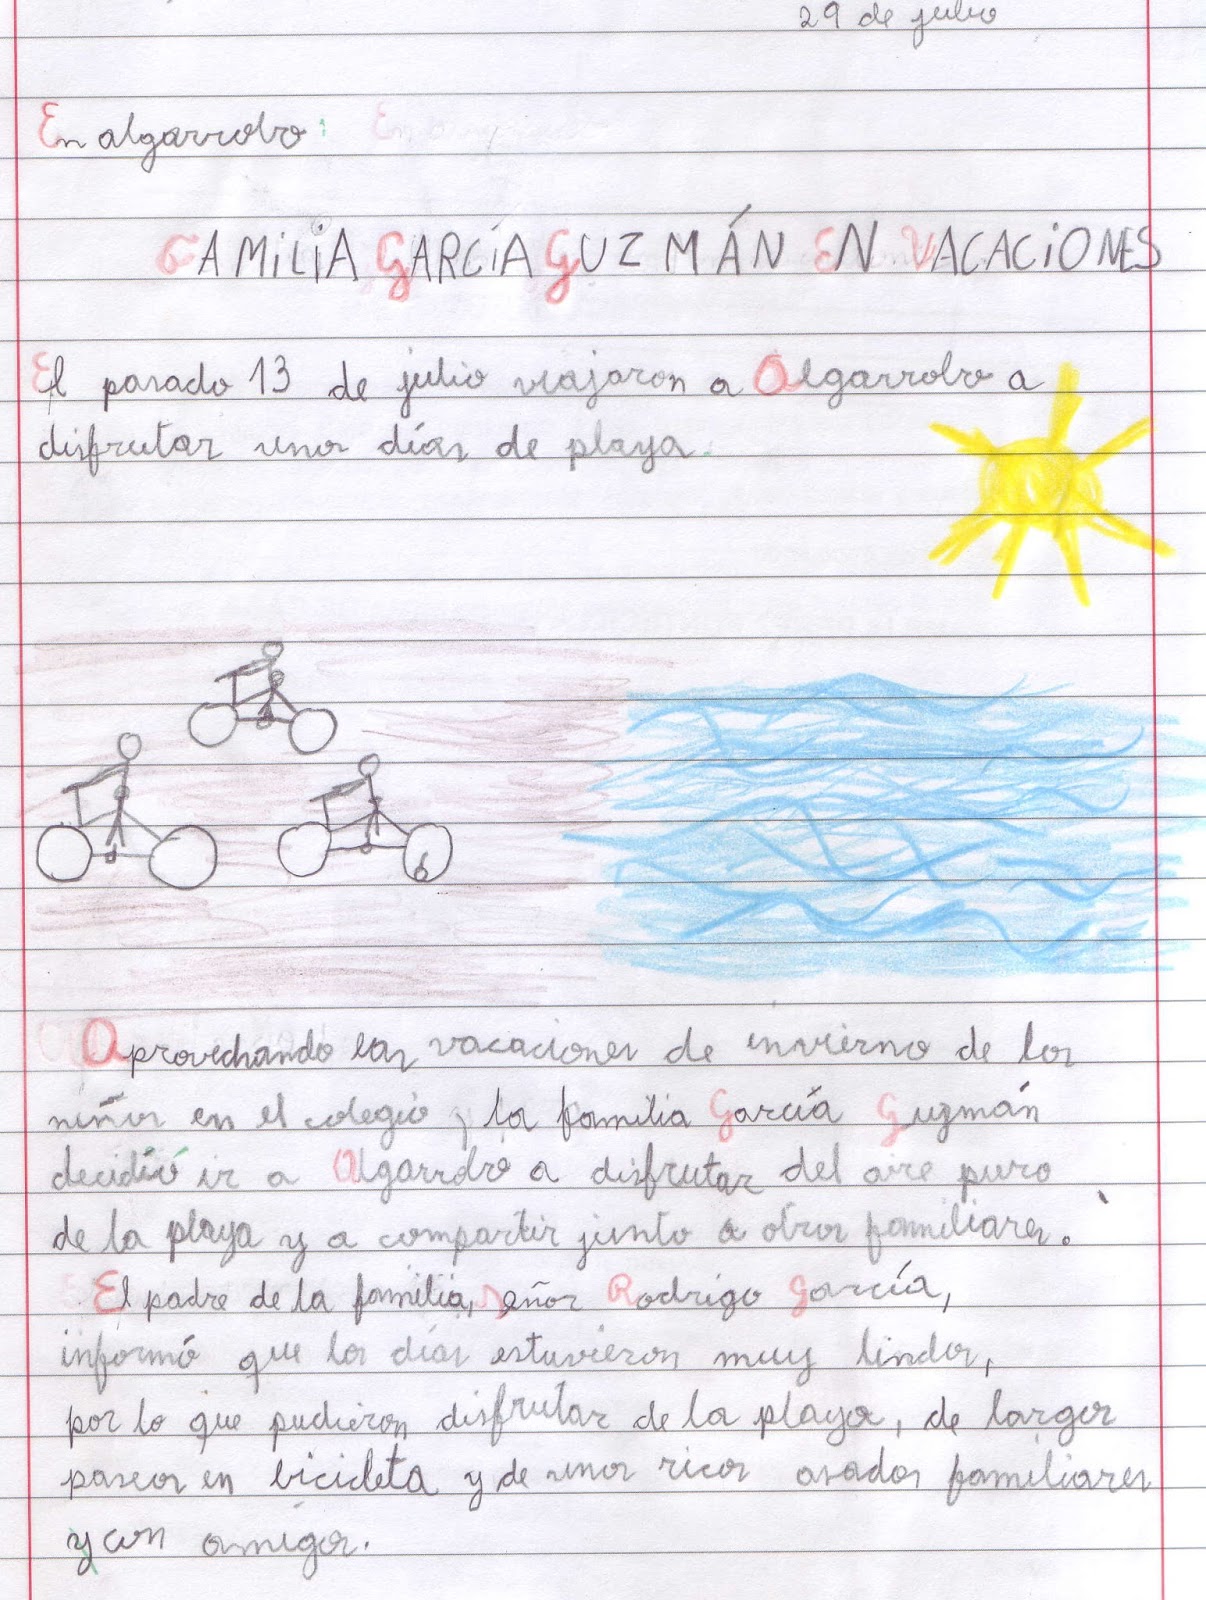 29 de julio
En algarrobo:
FAMILIA GARCÍA GUZMÁN EN VACACIONES
El pasado 13 de julio viajaron a Algarrobo a
disfrutar unos días de playa.
Aprovechando las vacaciones de invierno de los
niños en el colegio, la familia García Guzmán
decidió ir a Algarrobo a disfrutar del aire puro
de la playa y a compartir junto a otros familiares.
El padre de la familia, señor Rodrigo García,
informó que los días estuvieron muy lindos,
por lo que pudieron disfrutar de la playa, de largos
paseos en bicicleta y de unos ricos asados familiares
y con amigos.